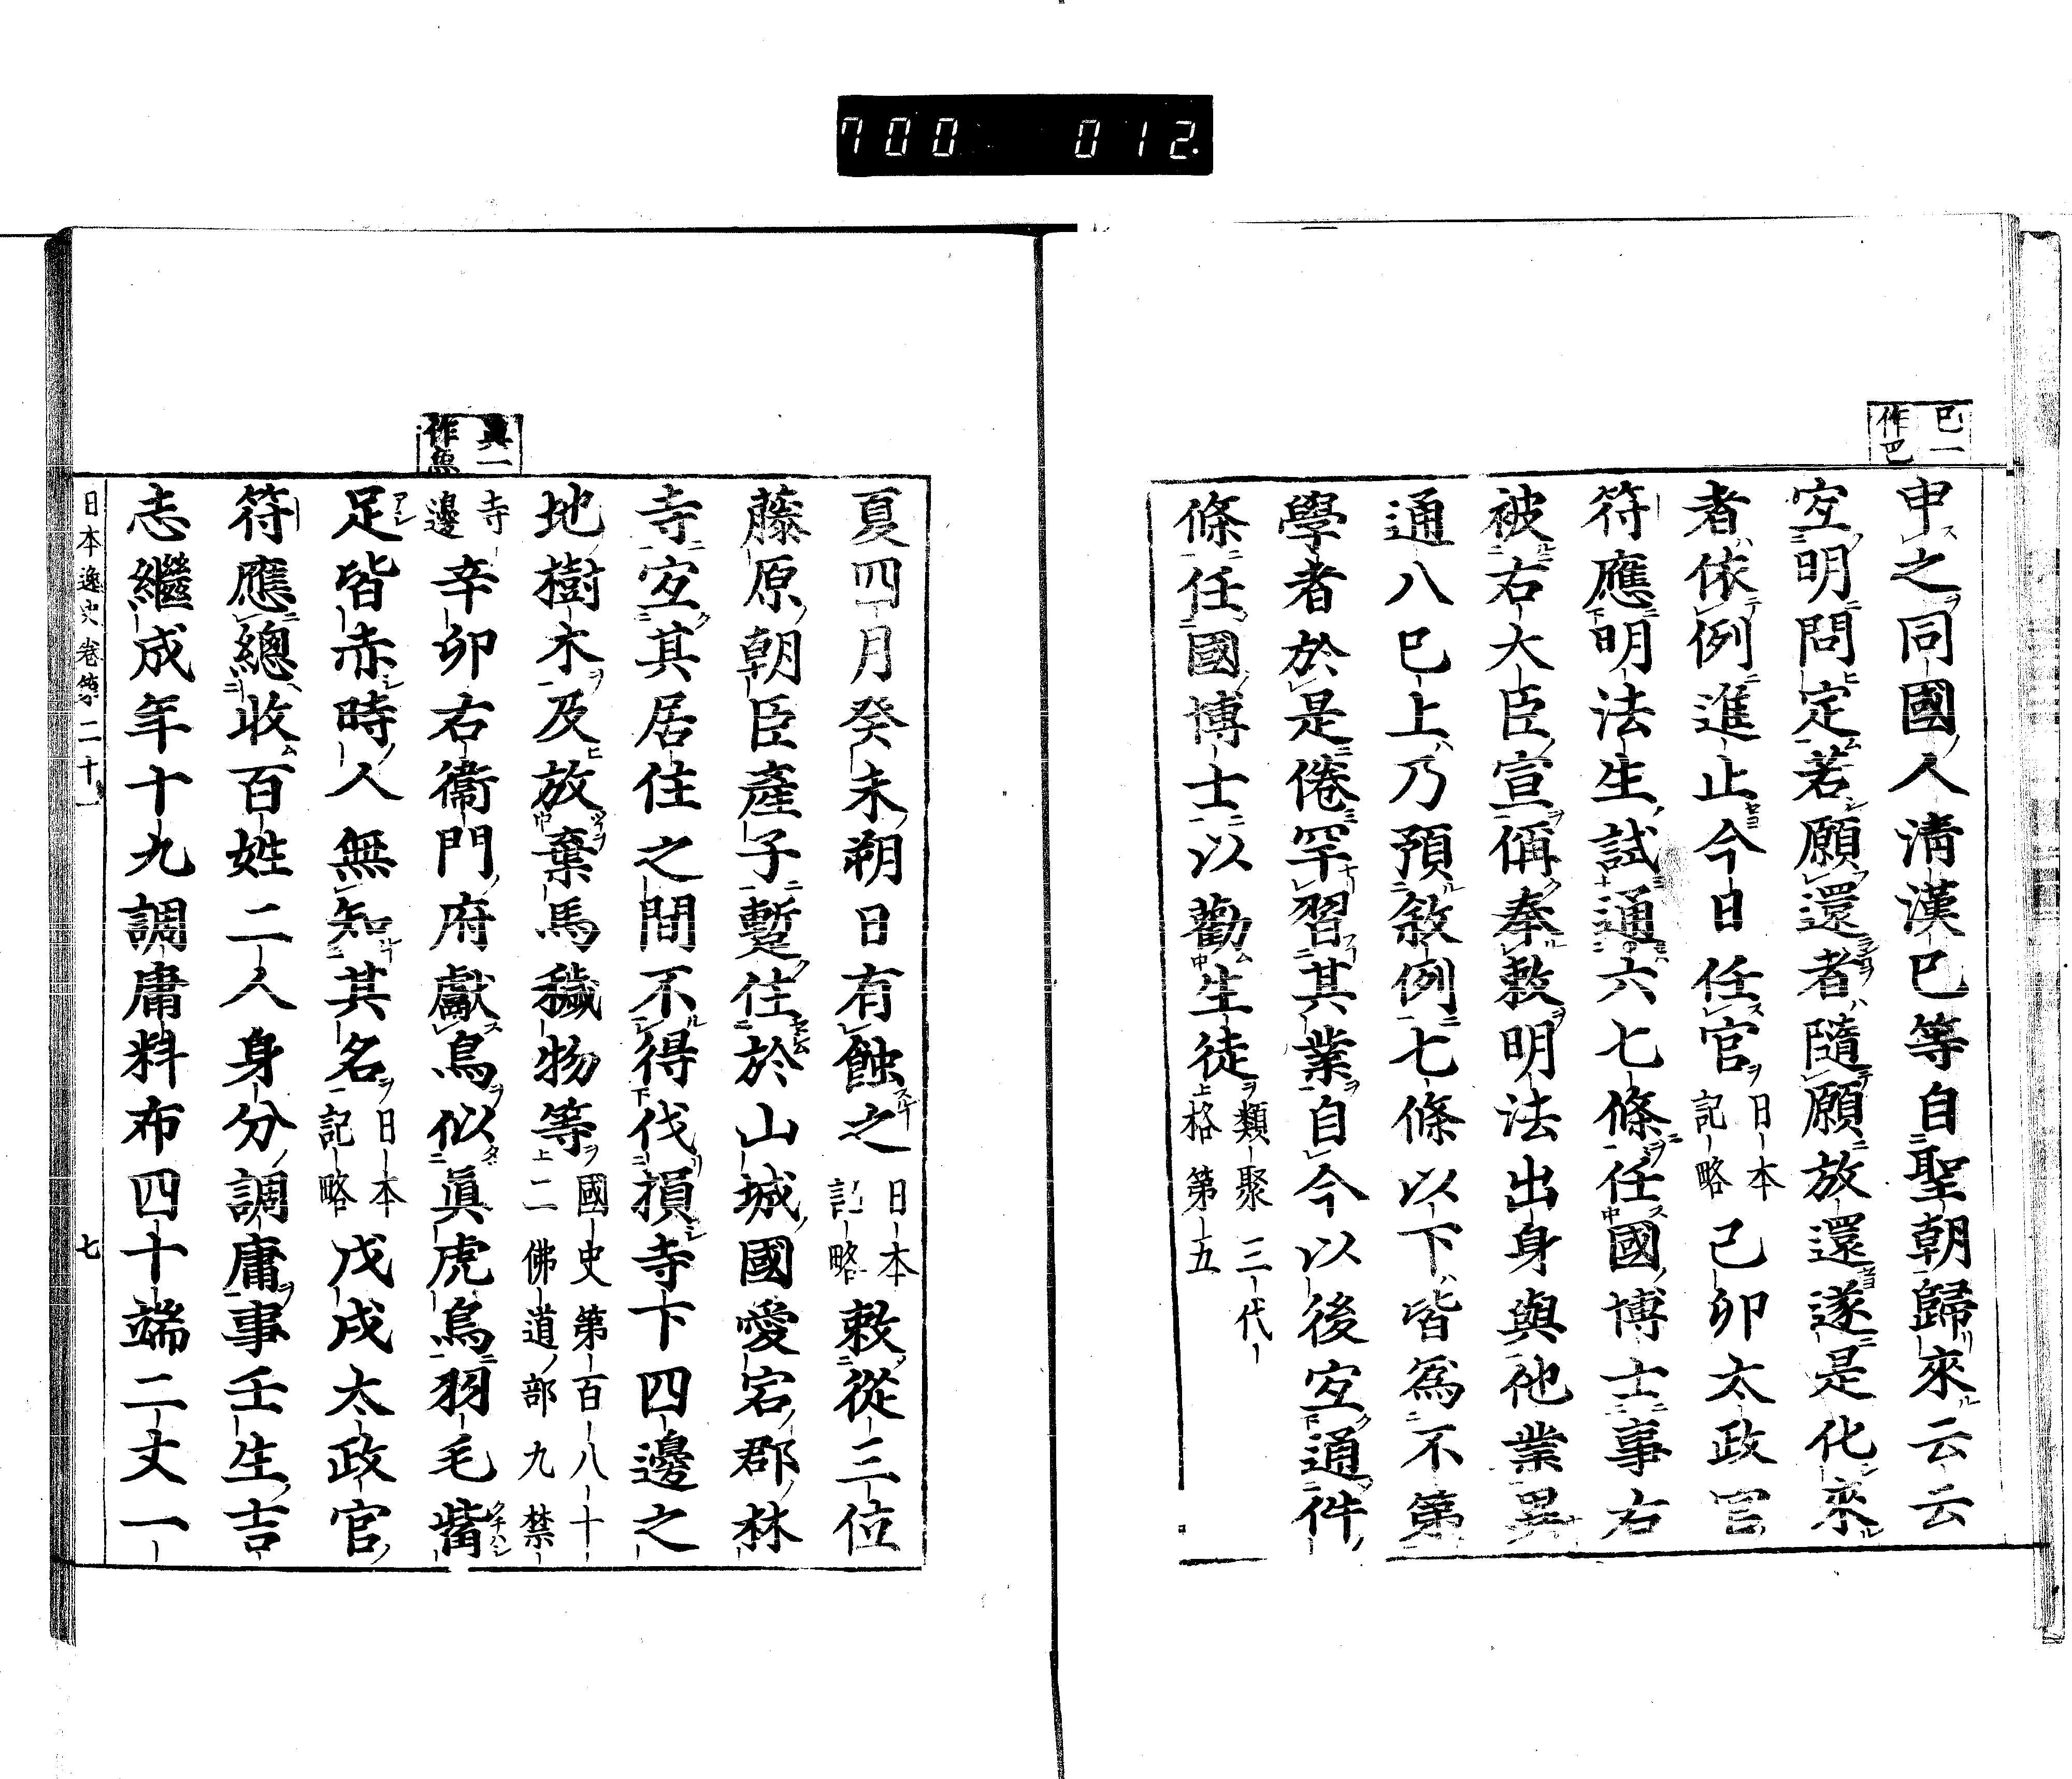 700 012.
巳一
作巴
申之同國人淸漢巳等自聖朝歸來云云
宜明問定若願還者隨願放還遂是化來
者依例進止今日任官日本記略己卯太政官
符應明法生試通六七條任國博士事右
被右大臣宣偁奉敕明法出身與他業異
通八巳上乃預敘例七條以下皆爲不第
學者於是倦罕習其業自今以後宜通件
條任國博士以勸生徒類聚三代格第五
眞一
作魚
夏四月癸未朔日有蝕之日本記略敕從三位
藤原朝臣產子蹔住於山城國愛宕郡林
寺宜其居住之間不得伐損寺下四邊之
地樹木及放棄馬穢物等國史第百八十二佛道部九禁
寺邊辛卯右衞門府獻鳥似眞虎鳥羽毛觜
足皆赤時人無知其名日本記略戊戌太政官
符應總收百姓二人身分調庸事壬生吉
志繼成年十九調庸料布四十端二丈一
日本逸史卷第二十一 七